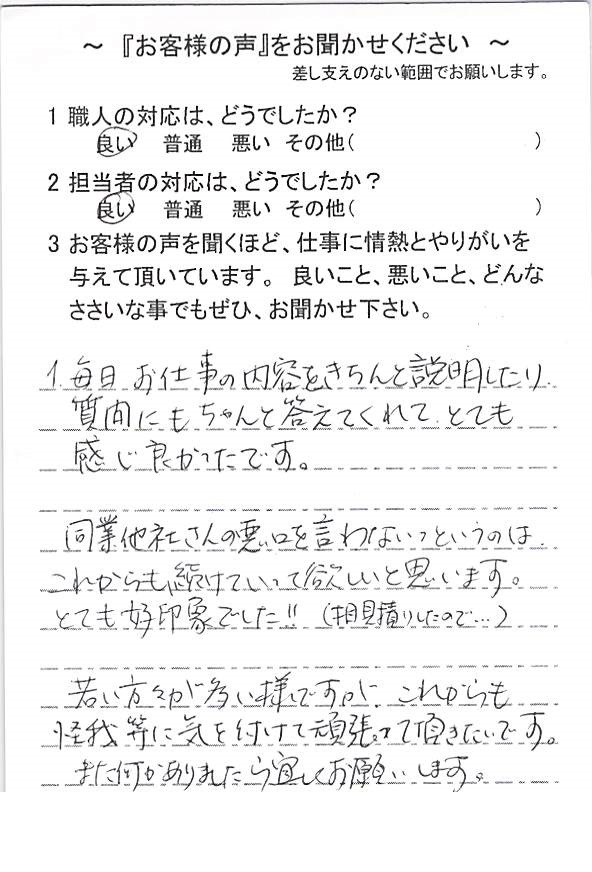 ～ 『お客様の声』をお聞かせください ～
差し支えのない範囲でお願いします。
1 職人の対応は、どうでしたか？
良い 普通 悪い その他( )
2 担当者の対応は、どうでしたか？
良い 普通 悪い その他( )
3 お客様の声を聞くほど、仕事に情熱とやりがいを
与えて頂いています。 良いこと、悪いこと、どんな
ささいな事でもぜひ、お聞かせ下さい。
1. 毎日 お仕事の内容をきちんと説明したり
質問にもちゃんと答えてくれて とても
感じ良かったです。
同業他社さんの悪口を言わないっというのは
これからも続けていって欲しいと思います。
とても好印象でした!! (相見積りしたので…)
若い方々が多い様ですが、これからも
怪我等に気を付けて頑張って頂きたいです。
また何かありましたら宜しくお願いします。